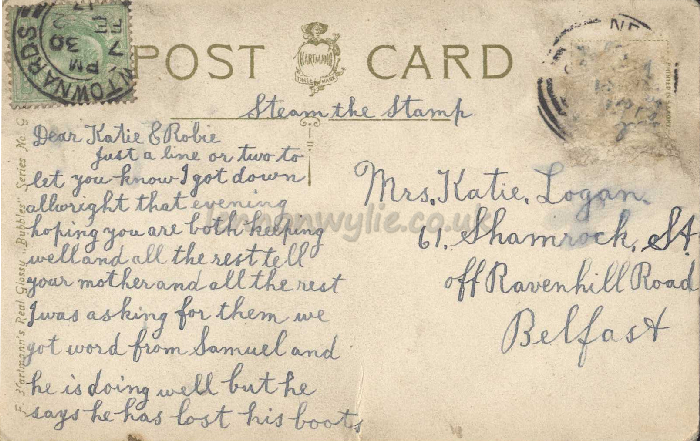 POST CARD
HARTMANN
TRADE MARK
NEWTOWNARDS
7 30 PM
FE
Steam the Stamp
Dear Katie & Robie
Just a line or two to
let you know I got down
allwright that evening
hoping you are both keeping
well and all the rest tell
your mother and all the rest
I was asking for them we
got word from Samuel and
he is doing well but he
says he has lost his boots
Mrs. Katie. Logan.
61. Shamrock. St.
off Ravenhill Road
Belfast
F. Hartmann's Real Glossy "Bubbles" Series No
wylie.co.uk
NE